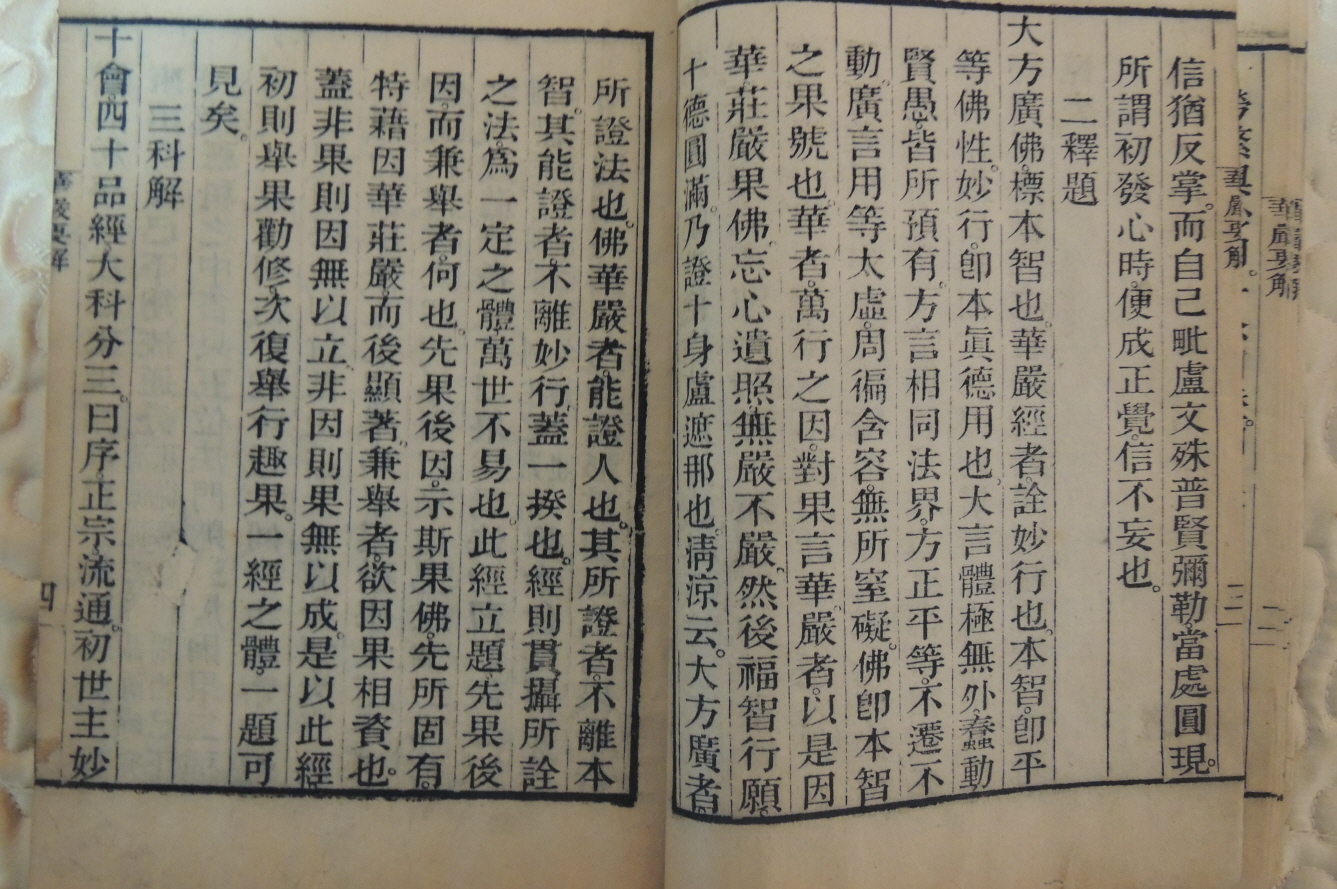 信猶反掌。而自己毗盧文殊普賢彌勒。當處圓現。
所謂初發心時。便成正覺。信不妄也。
二釋題
大方廣佛。標本智也。華嚴經者。詮妙行也。本智。卽平
等佛性。妙行。卽本眞德用也。大言體極無外。蠢動
賢愚。皆所預有。方言相同法界。方正平等。不遷不
動。廣言用等太虛。周徧含容。無所窒礙。佛卽本智
之果號也。華者。萬行之因。對果言華。嚴者。以是因
華。莊嚴果佛。忘心遺照。無嚴不嚴。然後福智行願。
十德圓滿。乃證十身盧遮那也。淸涼云。大方廣者。
所證法也。佛華嚴者。能證人也。其所證者。不離本
智。其能證者。不離妙行。蓋一揆也。經則貫攝所詮
之法。爲一定之體。萬世不易也。此經立題。先果後
因。而兼舉者。何也。先果後因。示斯果佛。先所固有。
特藉因華莊嚴而後顯著。兼舉者。欲因果相資也。
蓋非果則因無以立。非因則果無以成。是以此經。
初則舉果勸修。次復舉行趣果。一經之體。一題可
見矣。
三科解
十會四十品經。大科分三。曰序。正宗。流通。初世主妙
四